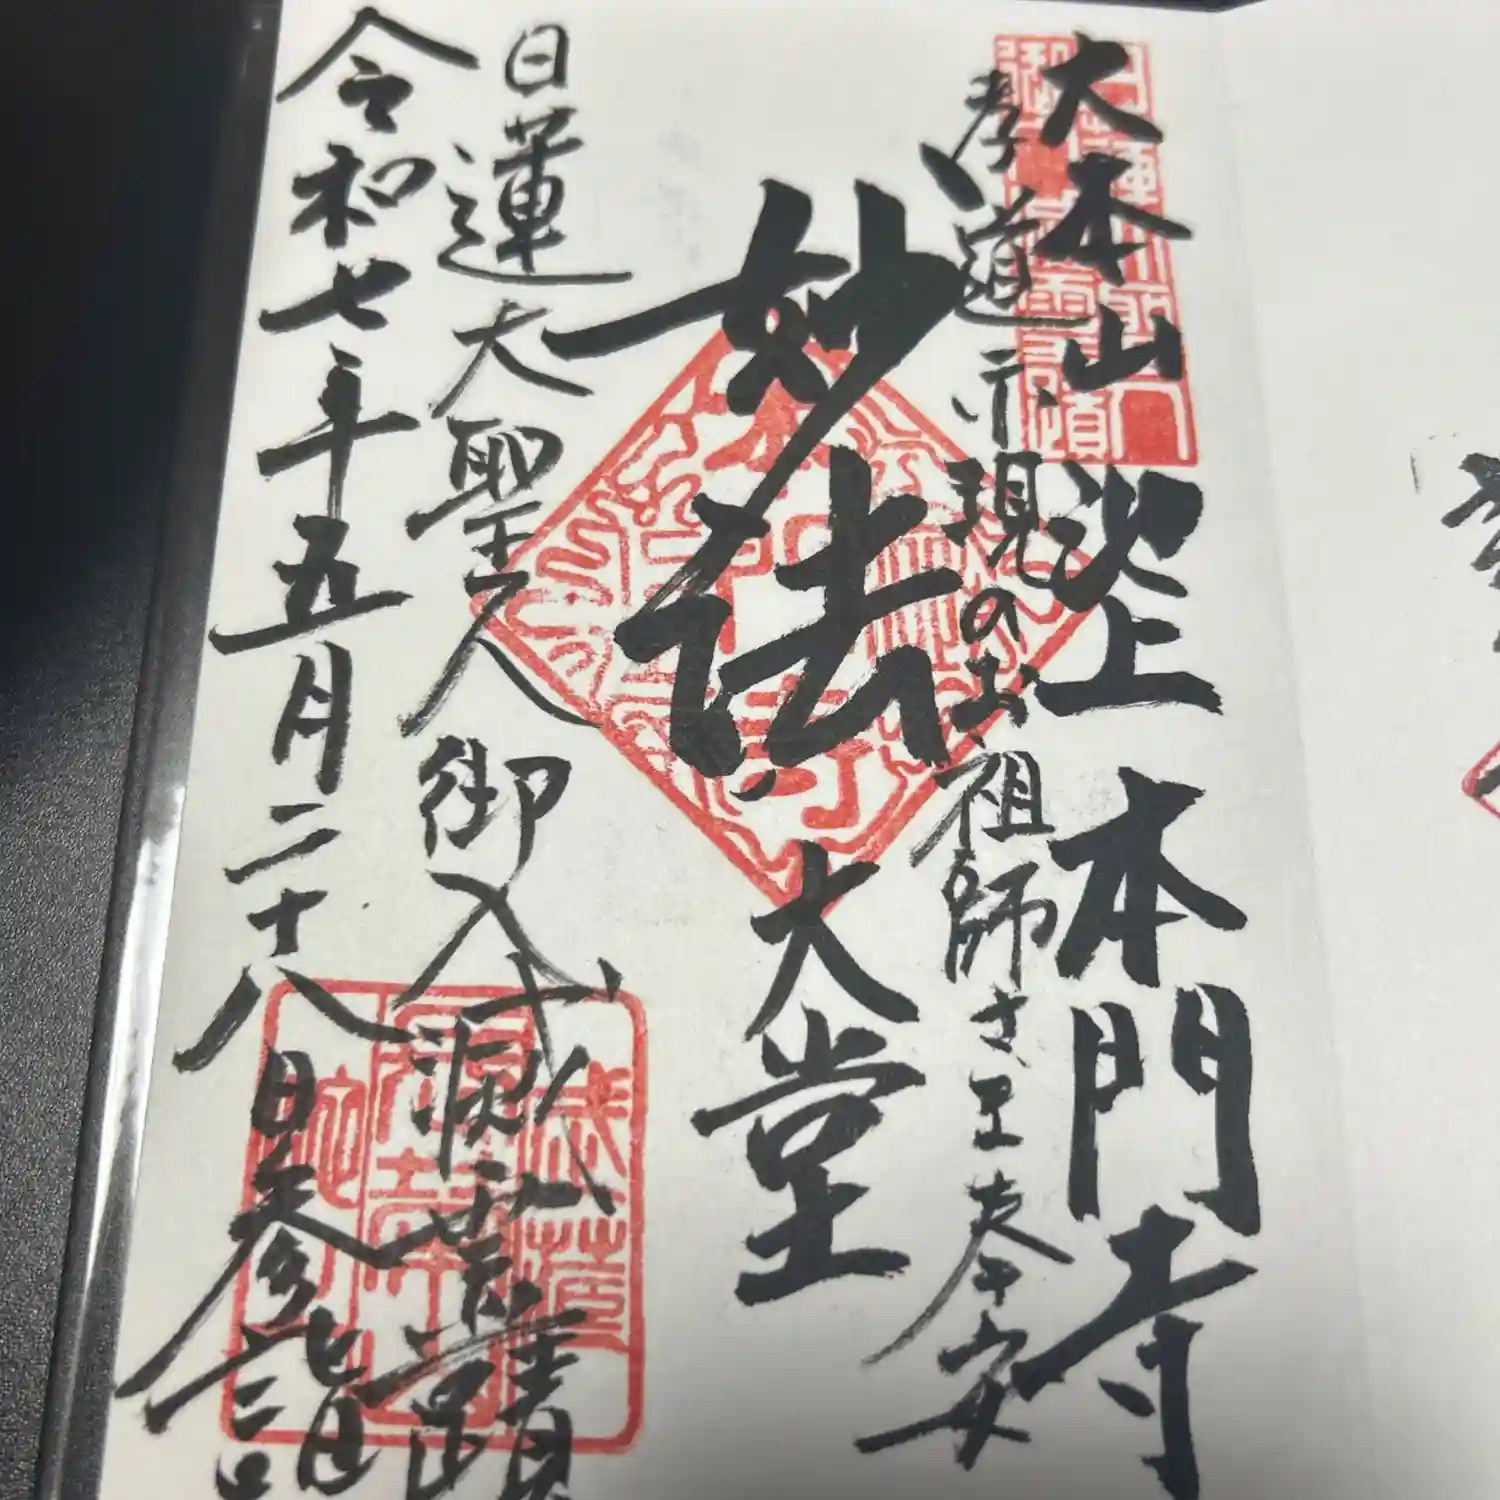 大本山 池上 本門寺
孝道示現のお祖師さま奉安
妙法
大堂
日蓮大聖人御入滅霊蹟
令和七年五月二十八日参詣